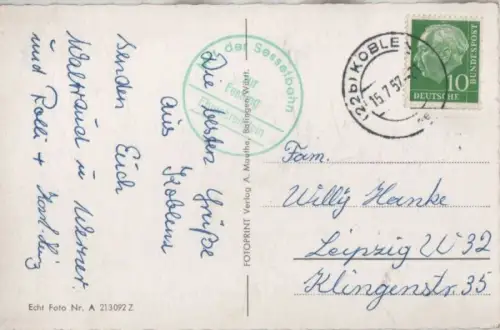 Die besten Grüße
aus Koblenz
senden Euch
Waltraud u. Werner
und Rolli +
Mit der Sesselbahn
zur
Festung
Ehrenbreitstein
(22b) KOBLE
15.7.57
DEUTSCHE BUNDESPOST
10
Fam.
Willy Hanke
Leipzig W 32
Klingenstr. 35
FOTOPRINT Verlag A. Mauthe, Balingen Württ.
Echt Foto Nr. A 213092 Z